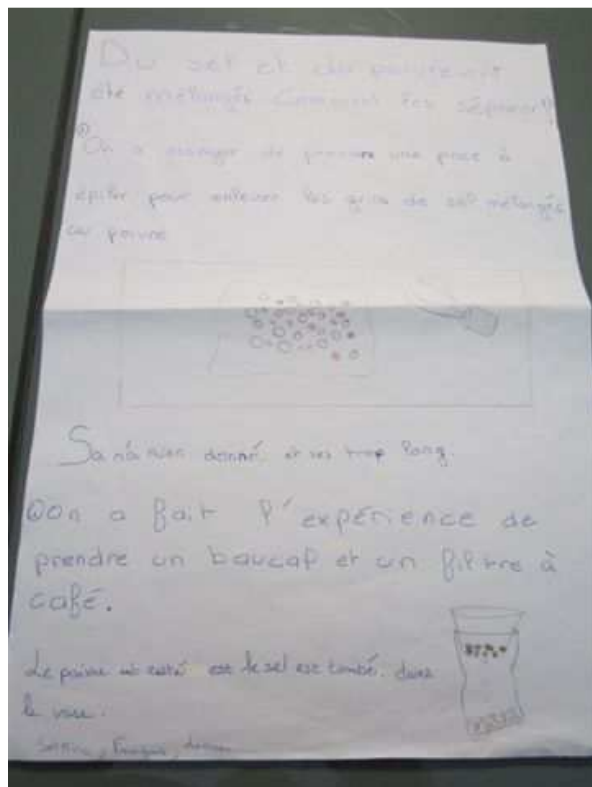 Du sel et du poivre ont
été mélangés Comment les séparer?
① On a essayer de prendre une pince à
épiler pour enlever les grin de sel mélangés
au poivre
Sa n'a rien donné et ses trop long.
② On a fait l'expérience de
prendre un baucal et un filtre à
café.
Le poivre est resté est le sel est tombé dans
le vase.